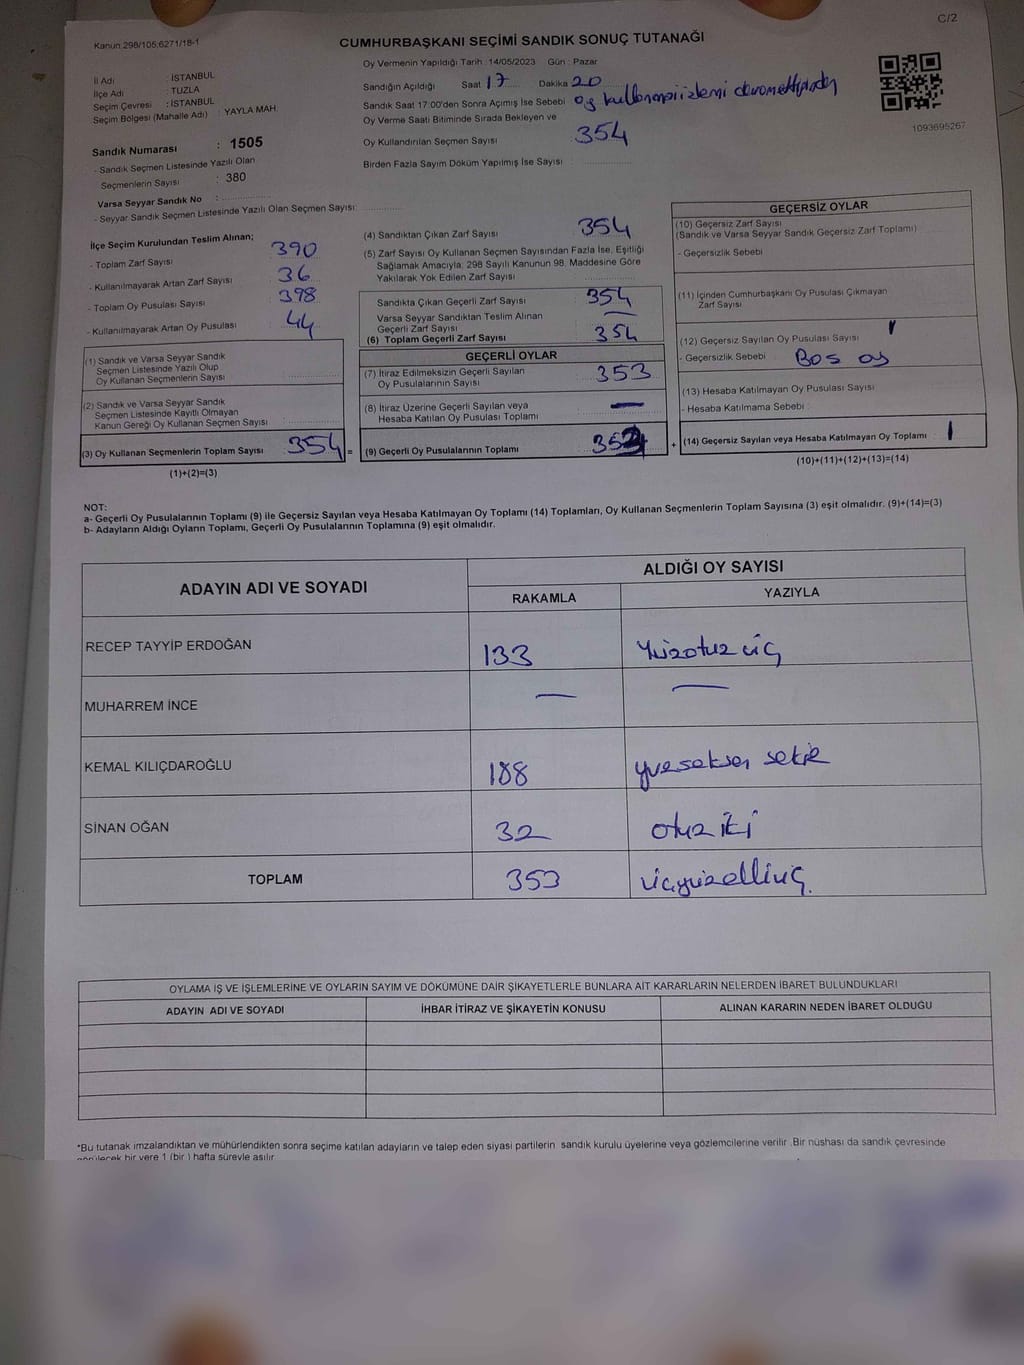 C/2
Kanun:298/105;6271/18-1
CUMHURBAŞKANI SEÇİMİ SANDIK SONUÇ TUTANAĞI
İl Adı : İSTANBUL
İlçe Adı : TUZLA
Seçim Çevresi : İSTANBUL
Seçim Bölgesi (Mahalle Adı) : YAYLA MAH.
Sandık Numarası : 1505
- Sandık Seçmen Listesinde Yazılı Olan
Seçmenlerin Sayısı : 380
Varsa Seyyar Sandık No :
- Seyyar Sandık Seçmen Listesinde Yazılı Olan Seçmen Sayısı:
Oy Vermenin Yapıldığı Tarih : 14/05/2023 Gün : Pazar
Sandığın Açıldığı Saat 17 Dakika 20
Sandık Saat 17:00'den Sonra Açımış İse Sebebi oy kullanma işlemi devam ettiğinden
Oy Verme Saati Bitiminde Sırada Bekleyen ve
Oy Kullandırılan Seçmen Sayısı 354
Birden Fazla Sayım Döküm Yapılmış İse Sayısı
1093695267
İlçe Seçim Kurulundan Teslim Alınan;
- Toplam Zarf Sayısı 390
- Kullanılmayarak Artan Zarf Sayısı 36
- Toplam Oy Pusulası Sayısı 398
- Kullanılmayarak Artan Oy Pusulası 44
(1) Sandık ve Varsa Seyyar Sandık
Seçmen Listesinde Yazılı Olup
Oy Kullanan Seçmenlerin Sayısı
(2) Sandık ve Varsa Seyyar Sandık
Seçmen Listesinde Kayıtlı Olmayan
Kanun Gereği Oy Kullanan Seçmen Sayısı
(3) Oy Kullanan Seçmenlerin Toplam Sayısı 354 =
(1)+(2)=(3)
(4) Sandıktan Çıkan Zarf Sayısı 354
(5) Zarf Sayısı Oy Kullanan Seçmen Sayısından Fazla İse, Eşitliği
Sağlamak Amacıyla, 298 Sayılı Kanunun 98. Maddesine Göre
Yakılarak Yok Edilen Zarf Sayısı
Sandıkta Çıkan Geçerli Zarf Sayısı 354
Varsa Seyyar Sandıktan Teslim Alınan
Geçerli Zarf Sayısı —
(6) Toplam Geçerli Zarf Sayısı 354
GEÇERLİ OYLAR
(7) İtiraz Edilmeksizin Geçerli Sayılan
Oy Pusulalarının Sayısı 353
(8) İtiraz Üzerine Geçerli Sayılan veya
Hesaba Katılan Oy Pusulası Toplamı —
(9) Geçerli Oy Pusulalarının Toplamı +
GEÇERSİZ OYLAR
(10) Geçersiz Zarf Sayısı
(Sandık ve Varsa Seyyar Sandık Geçersiz Zarf Toplamı)
- Geçersizlik Sebebi
(11) İçinden Cumhurbaşkanı Oy Pusulası Çıkmayan
Zarf Sayısı
(12) Geçersiz Sayılan Oy Pusulası Sayısı 1
- Geçersizlik Sebebi Boş oy
(13) Hesaba Katılmayan Oy Pusulası Sayısı
- Hesaba Katılmama Sebebi :
(14) Geçersiz Sayılan veya Hesaba Katılmayan Oy Toplamı 1
(10)+(11)+(12)+(13)=(14)
NOT:
a- Geçerli Oy Pusulalarının Toplamı (9) ile Geçersiz Sayılan veya Hesaba Katılmayan Oy Toplamı (14) Toplamları, Oy Kullanan Seçmenlerin Toplam Sayısına (3) eşit olmalıdır. (9)+(14)=(3)
b- Adayların Aldığı Oyların Toplamı, Geçerli Oy Pusulalarının Toplamına (9) eşit olmalıdır.
ADAYIN ADI VE SOYADI
ALDIĞI OY SAYISI
RAKAMLA YAZIYLA
RECEP TAYYİP ERDOĞAN 133 Yüzotuz üç
MUHARREM İNCE — —
KEMAL KILIÇDAROĞLU 188 yüzseksen sekiz
SİNAN OĞAN 32 otuz iki
TOPLAM 353 üçyüzelliüç
OYLAMA İŞ VE İŞLEMLERİNE VE OYLARIN SAYIM VE DÖKÜMÜNE DAİR ŞİKAYETLERLE BUNLARA AİT KARARLARIN NELERDEN İBARET BULUNDUKLARI
ADAYIN ADI VE SOYADI İHBAR İTİRAZ VE ŞİKAYETİN KONUSU ALINAN KARARIN NEDEN İBARET OLDUĞU
*Bu tutanak imzalandıktan ve mühürlendikten sonra seçime katılan adayların ve talep eden siyasi partilerin sandık kurulu üyelerine veya gözlemcilerine verilir .Bir nüshası da sandık çevresinde
görülecek bir yere 1 (bir ) hafta süreyle asılır